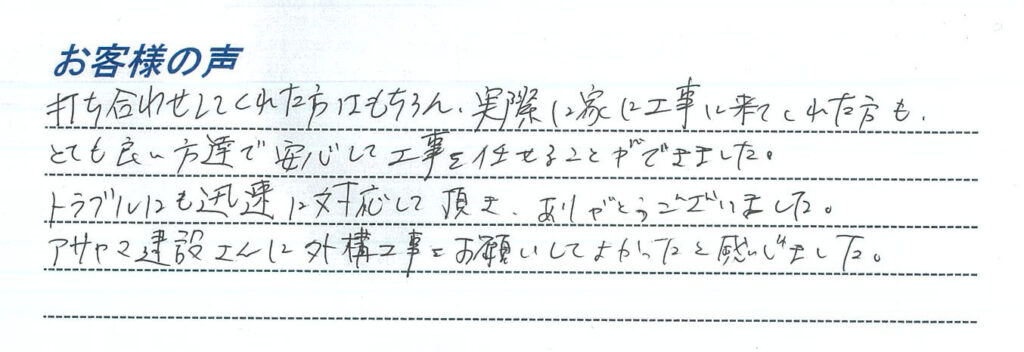 お客様の声
打ち合わせしてくれた方はもちろん、実際に家に工事に来てくれた方も、
とても良い方達で安心して工事を任せることができました。
トラブルにも迅速に対応して頂き、ありがとうございました。
アサヤマ建設さんに外構工事をお願いしてよかったと感じました。